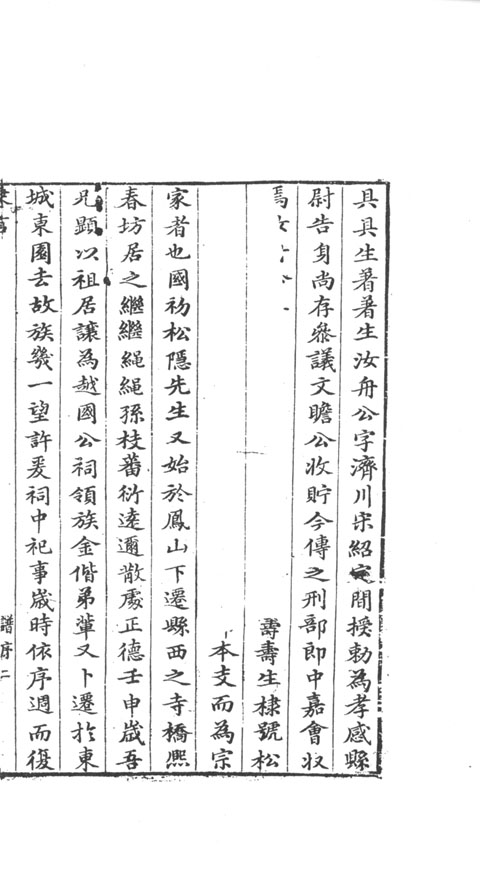 具具生著著生汝舟公字濟川宋紹定間授勅為孝感縣
尉告身尚存參議文瞻公收貯今傳之刑部郎中嘉會收
壽壽生棣號松
本支而為宗
家者也國初松隱先生又始於鳳山下遷縣西之寺橋熈
春坊居之繼繼繩繩孫枝蕃衍逹邇散處正德壬申歳吾
兄顯以祖居讓為越國公祠領族金偕弟輩又卜遷於東
城東園去故族幾一望許爰祠中祀事歳時依序週而復
譜序二